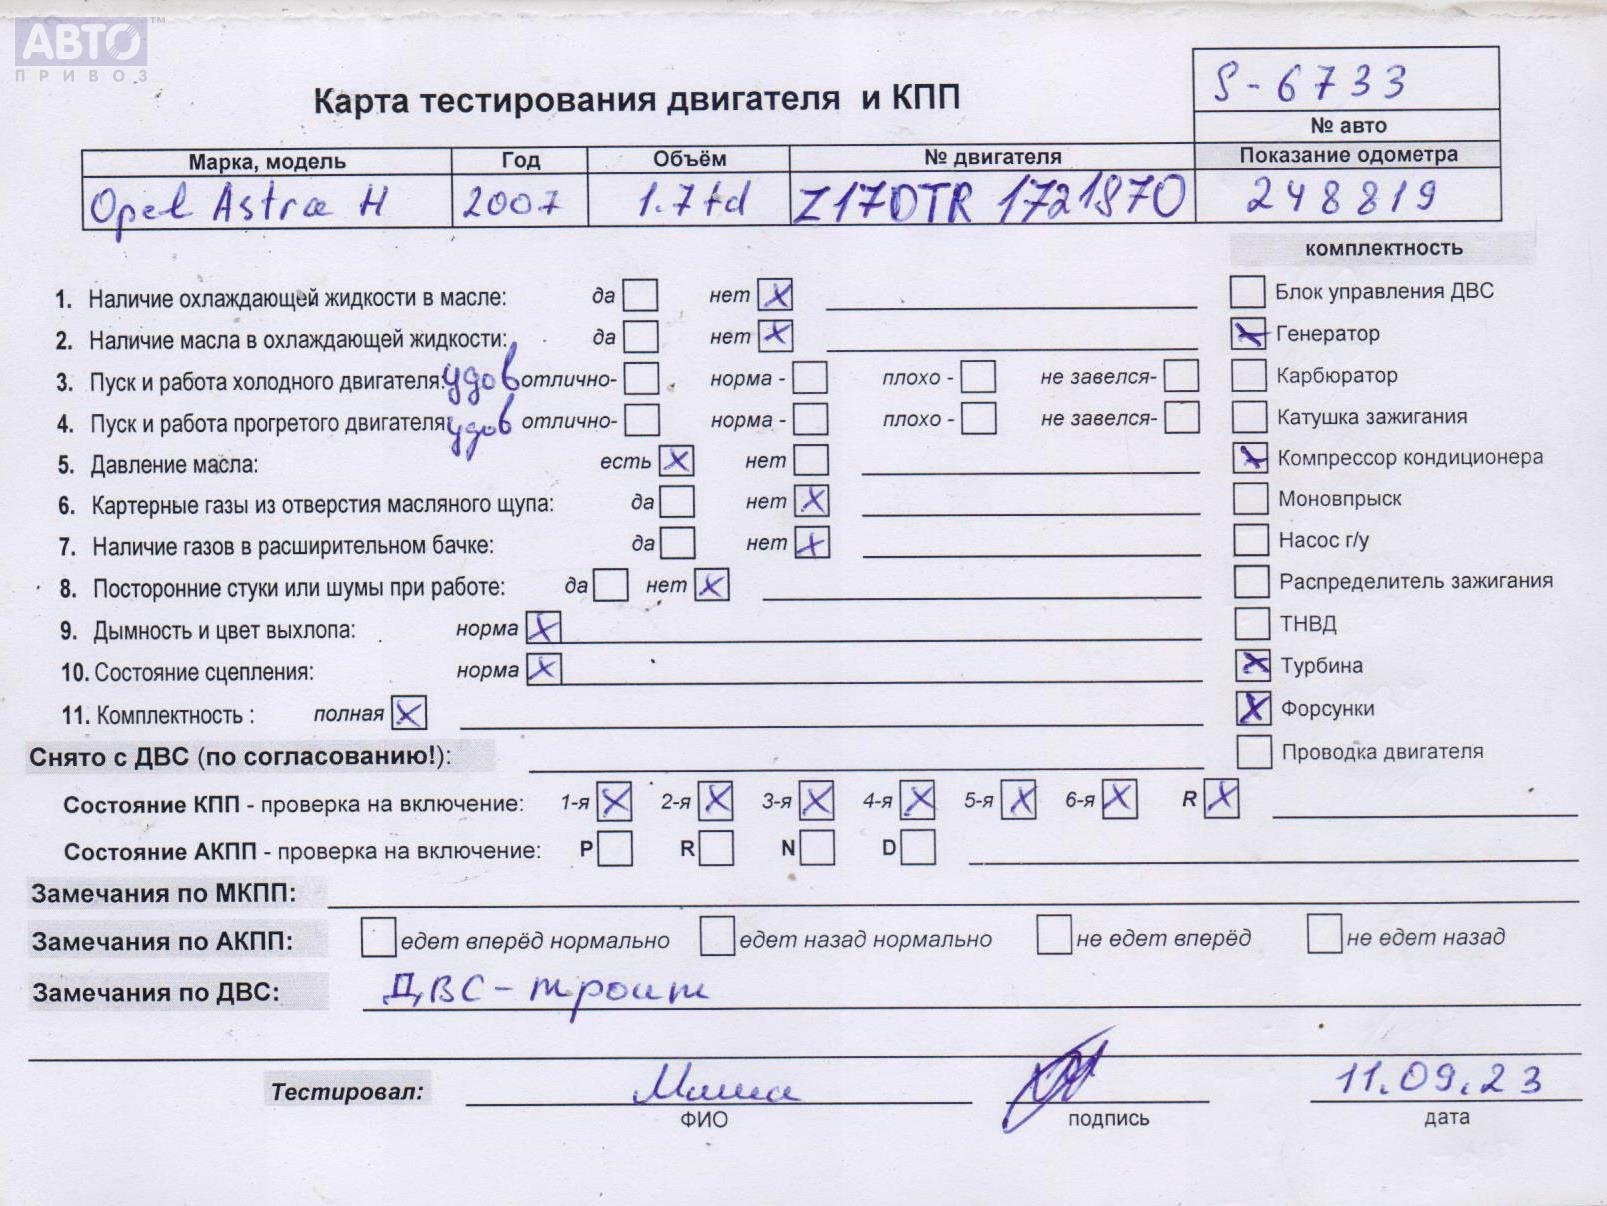 АВТО™
ПРИВОЗ
Карта тестирования двигателя и КПП
S-6733
№ авто
Марка, модель Год Объём № двигателя Показание одометра
Opel Astra H 2007 1.7td Z17DTR 1721970 248819
комплектность
1. Наличие охлаждающей жидкости в масле: да нет X
Блок управления ДВС
2. Наличие масла в охлаждающей жидкости: да нет X
Генератор X
3. Пуск и работа холодного двигателя: удов отлично- норма - плохо - не завелся-
Карбюратор
4. Пуск и работа прогретого двигателя: удов отлично- норма - плохо - не завелся-
Катушка зажигания
5. Давление масла: есть X нет
Компрессор кондиционера X
6. Картерные газы из отверстия масляного щупа: да нет X
Моновпрыск
7. Наличие газов в расширительном бачке: да нет X
Насос г/у
8. Посторонние стуки или шумы при работе: да нет X
Распределитель зажигания
9. Дымность и цвет выхлопа: норма X
ТНВД
10. Состояние сцепления: норма X
Турбина X
11. Комплектность : полная X
Форсунки X
Снято с ДВС (по согласованию!):
Проводка двигателя
Состояние КПП - проверка на включение: 1-я X 2-я X 3-я X 4-я X 5-я X 6-я X R X
Состояние АКПП - проверка на включение: P R N D
Замечания по МКПП:
Замечания по АКПП: едет вперёд нормально едет назад нормально не едет вперёд не едет назад
Замечания по ДВС: ДВС - троит
Тестировал: Миша 11.09.23
ФИО подпись дата